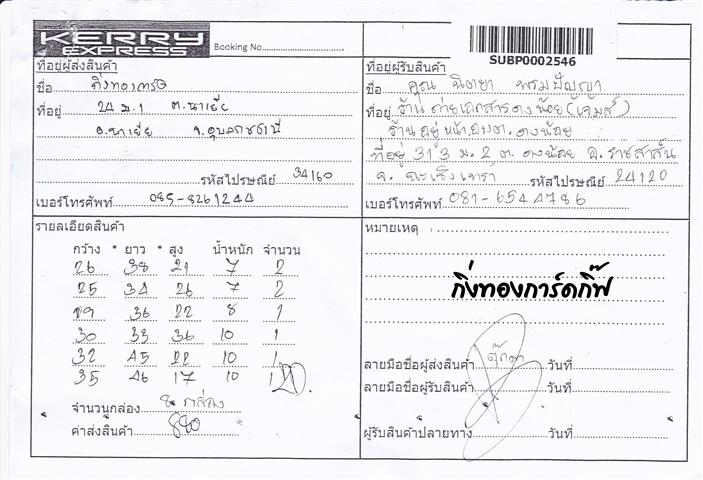 KERRY EXPRESS
Booking No.
SUBP0002546
ที่อยู่ผู้ส่งสินค้า
ชื่อ กิ่งทองการ์ด
ที่อยู่ 24 ม.1 ต.นาเยีย
อ.นาเยีย จ.อุบลราชธานี
รหัสไปรษณีย์ 34160
เบอร์โทรศัพท์ 085-8261244
ที่อยู่ผู้รับสินค้า
ชื่อ คุณ นิตยา พรมปัญญา
ที่อยู่ ร้านถ่ายเอกสารดงน้อย(เจมส์)
ร้านอยู่หน้าอบต.ดงน้อย
ที่อยู่ 313 ม.2 ต.ดงน้อย อ.ราชสาส์น
จ.ฉะเชิงเทรา รหัสไปรษณีย์ 24120
เบอร์โทรศัพท์ 081-6544786
รายละเอียดสินค้า
กว้าง * ยาว * สูง น้ำหนัก จำนวน
26 38 21 7 2
25 34 26 7 2
29 36 22 8 1
30 33 36 10 1
32 45 22 10 1
35 46 17 10 1
จำนวนกล่อง 8 กล่อง
ค่าส่งสินค้า 880
หมายเหตุ :
กิ่งทองการ์ดกิ๊ฟ
ลายมือชื่อผู้ส่งสินค้า ตุ๊กตา วันที่
ลายมือชื่อผู้รับสินค้า วันที่
ผู้รับสินค้าปลายทาง วันที่